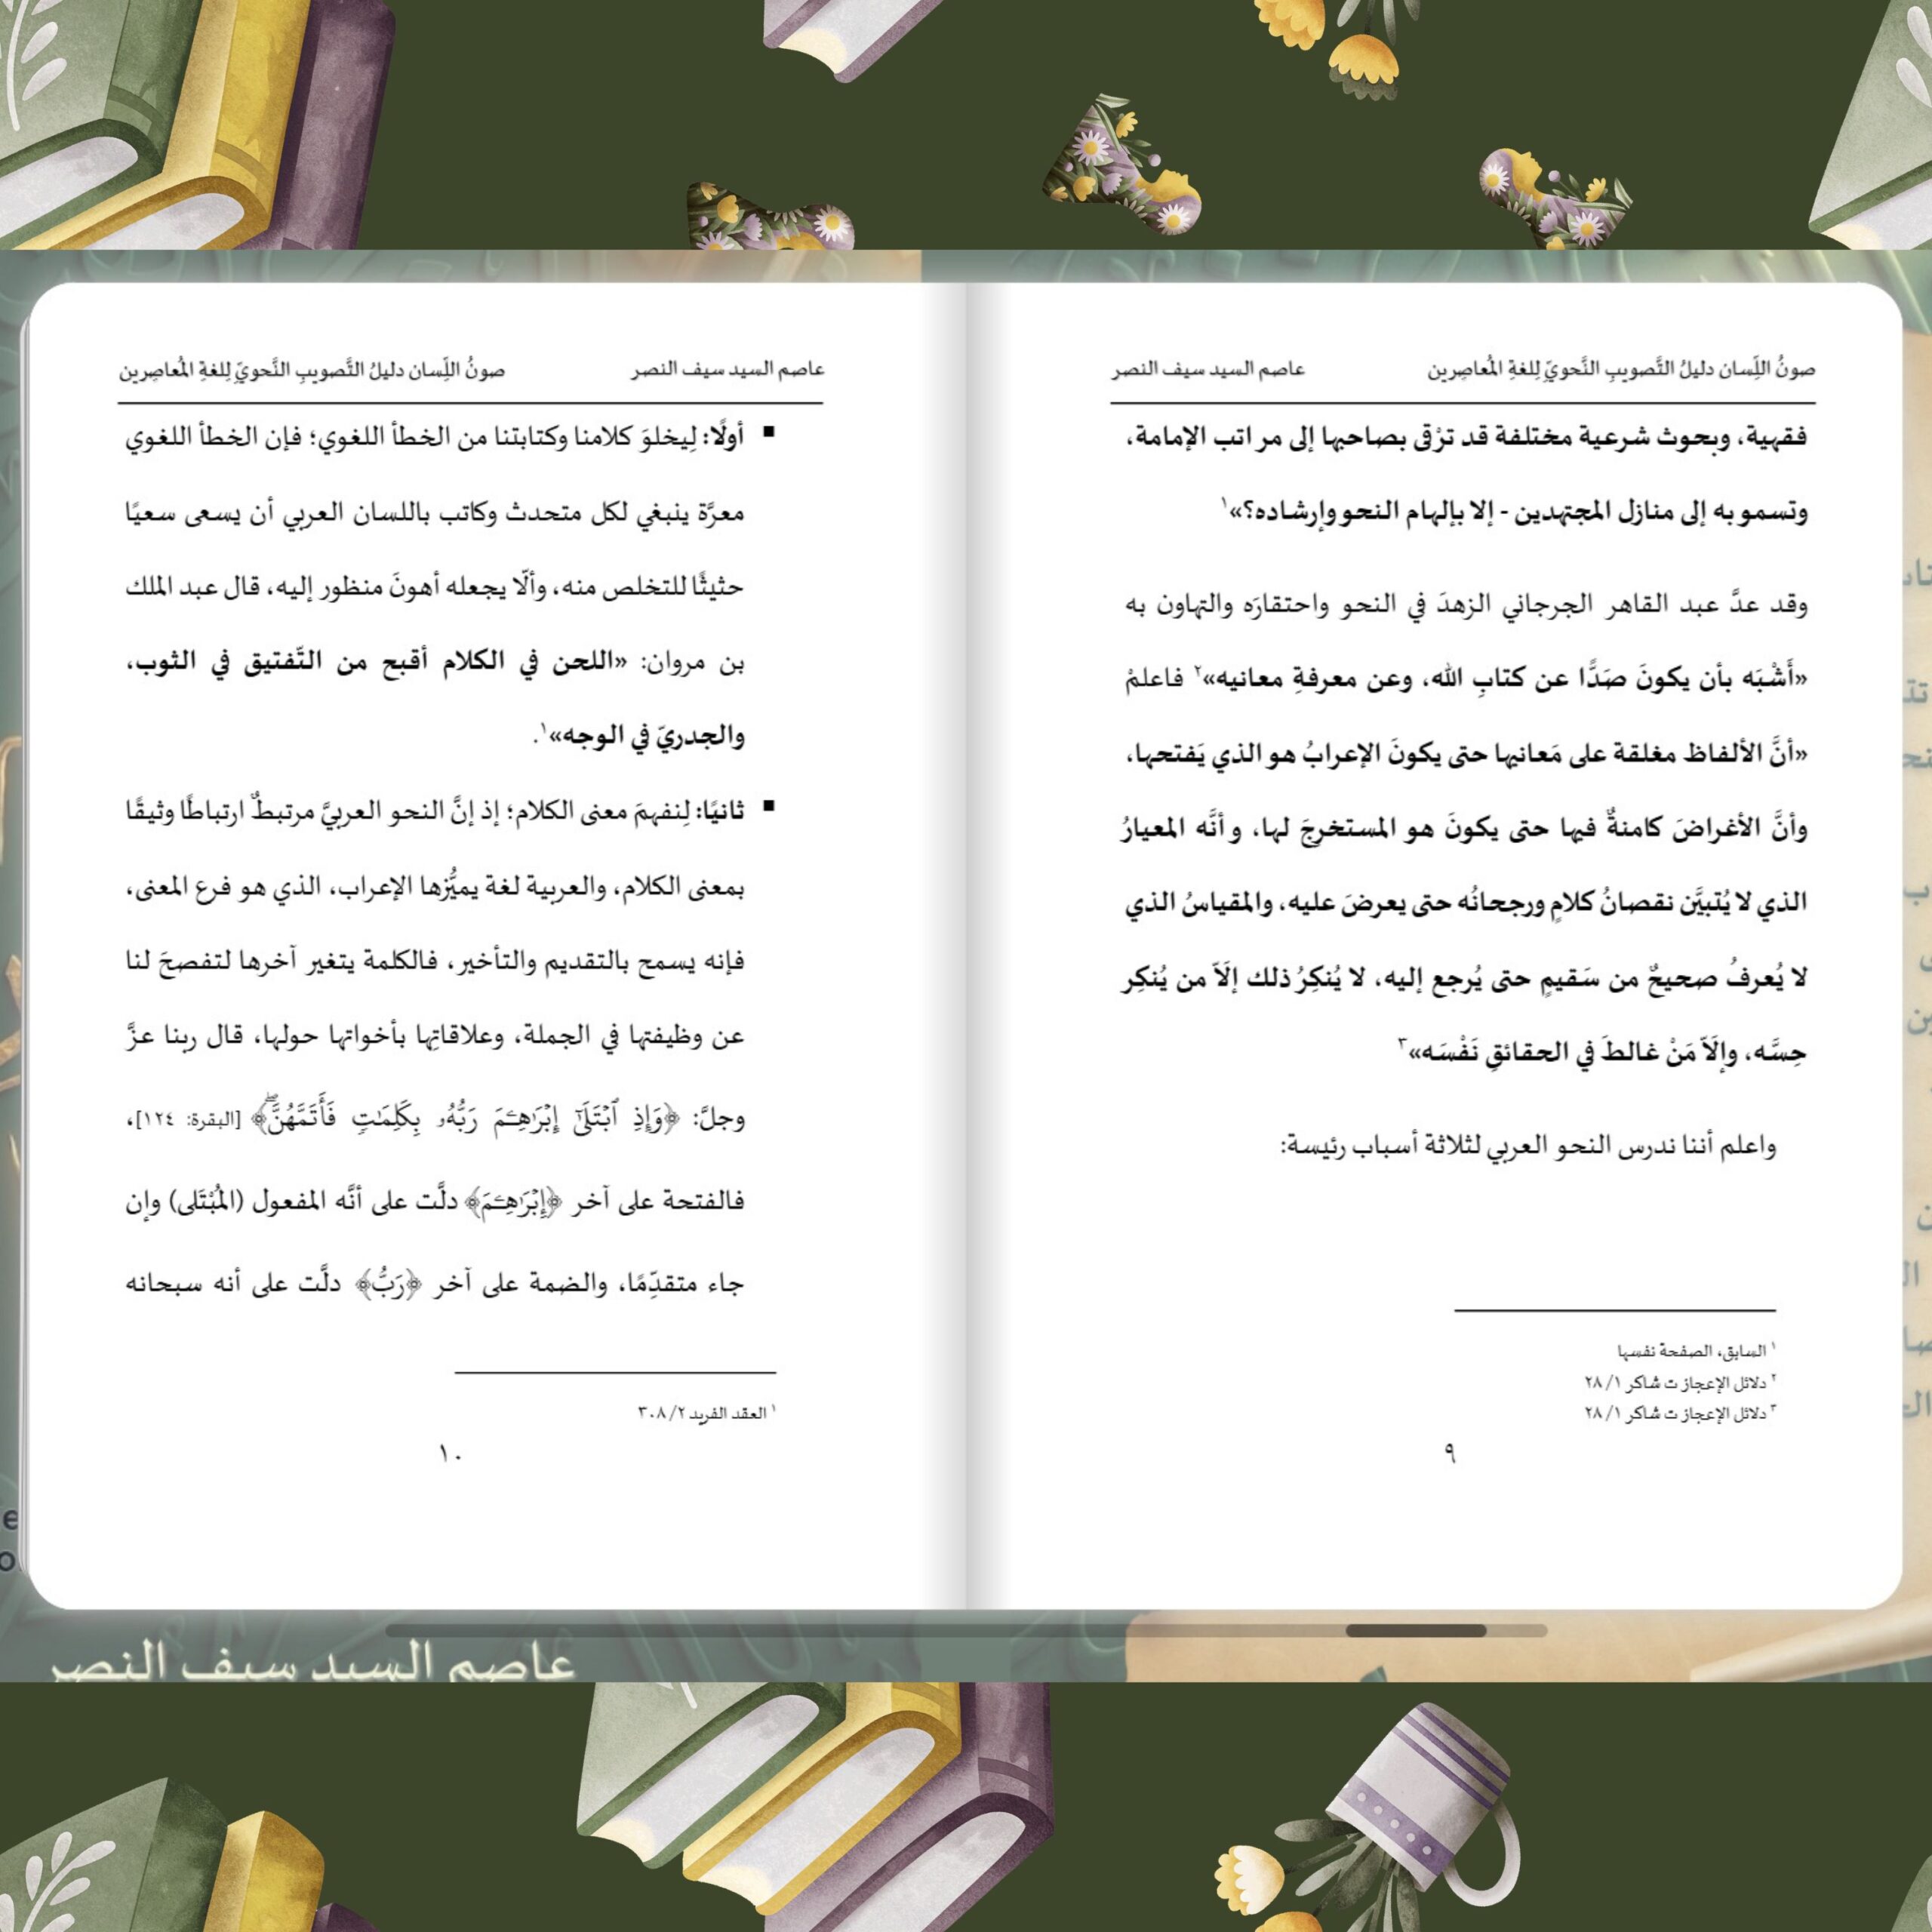 صونُ اللِّسان دليلُ التَّصويبِ النَّحويِّ لِلغةِ المُعاصِرين
عاصم السيد سيف النصر
فقهية، وبحوث شرعية مختلفة قد ترْقى بصاحبها إلى مراتب الإمامة،
وتسمو به إلى منازل المجتهدين - إلا بإلهام النحو وإرشاده؟»١
وقد عدَّ عبد القاهر الجرجاني الزهدَ في النحو واحتقارَه والتهاون به
«أَشْبَه بأن يكونَ صَدًّا عن كتابِ الله، وعن معرفةِ معانيه»٢ فاعلمْ
«أنَّ الألفاظ مغلقة على مَعانيها حتى يكونَ الإعرابُ هو الذي يَفتحها،
وأنَّ الأغراضَ كامنةٌ فيها حتى يكونَ هو المستخرِجَ لها، وأنَّه المعيارُ
الذي لا يُتبيَّن نقصانُ كلامٍ ورجحانُه حتى يعرضَ عليه، والمقياسُ الذي
لا يُعرفُ صحيحٌ من سَقيمٍ حتى يُرجع إليه، لا يُنكِرُ ذلك إلَّا من يُنكِر
حِسَّه، وإلَّا مَنْ غالطَ في الحقائقِ نَفْسَه»٣
واعلم أننا ندرس النحو العربي لثلاثة أسباب رئيسة:
١ السابق، الصفحة نفسها
٢ دلائل الإعجاز ت شاكر ٢٨/١
٣ دلائل الإعجاز ت شاكر ٢٨/١
٩
عاصم السيد سيف النصر
صونُ اللِّسان دليلُ التَّصويبِ النَّحويِّ لِلغةِ المُعاصِرين
▪ أولًا: لِيخلوَ كلامنا وكتابتنا من الخطأ اللغوي؛ فإن الخطأ اللغوي
معرَّة ينبغي لكل متحدث وكاتب باللسان العربي أن يسعى سعيًا
حثيثًا للتخلص منه، وألّا يجعله أهونَ منظور إليه، قال عبد الملك
بن مروان: «اللحن في الكلام أقبح من التّفتيق في الثوب،
والجدريّ في الوجه»١.
▪ ثانيًا: لِنفهمَ معنى الكلام؛ إذ إنَّ النحو العربيَّ مرتبطٌ ارتباطًا وثيقًا
بمعنى الكلام، والعربية لغة يميُّزها الإعراب، الذي هو فرع المعنى،
فإنه يسمح بالتقديم والتأخير، فالكلمة يتغير آخرها لتفصحَ لنا
عن وظيفتها في الجملة، وعلاقاتِها بأخواتها حولها، قال ربنا عزَّ
وجلَّ: ﴿وَإِذِ ٱبۡتَلَىٰٓ إِبۡرَٰهِـۧمَ رَبُّهُۥ بِكَلِمَٰتٖ فَأَتَمَّهُنَّۖ﴾ [البقرة: ١٢٤]،
فالفتحة على آخر ﴿إِبۡرَٰهِـۧمَ﴾ دلَّت على أنَّه المفعول (المُبْتَلى) وإن
جاء متقدِّمًا، والضمة على آخر ﴿رَبُّ﴾ دلَّت على أنه سبحانه
١ العقد الفريد ٣٠٨/٢
١٠
عاصم السيد سيف النصر